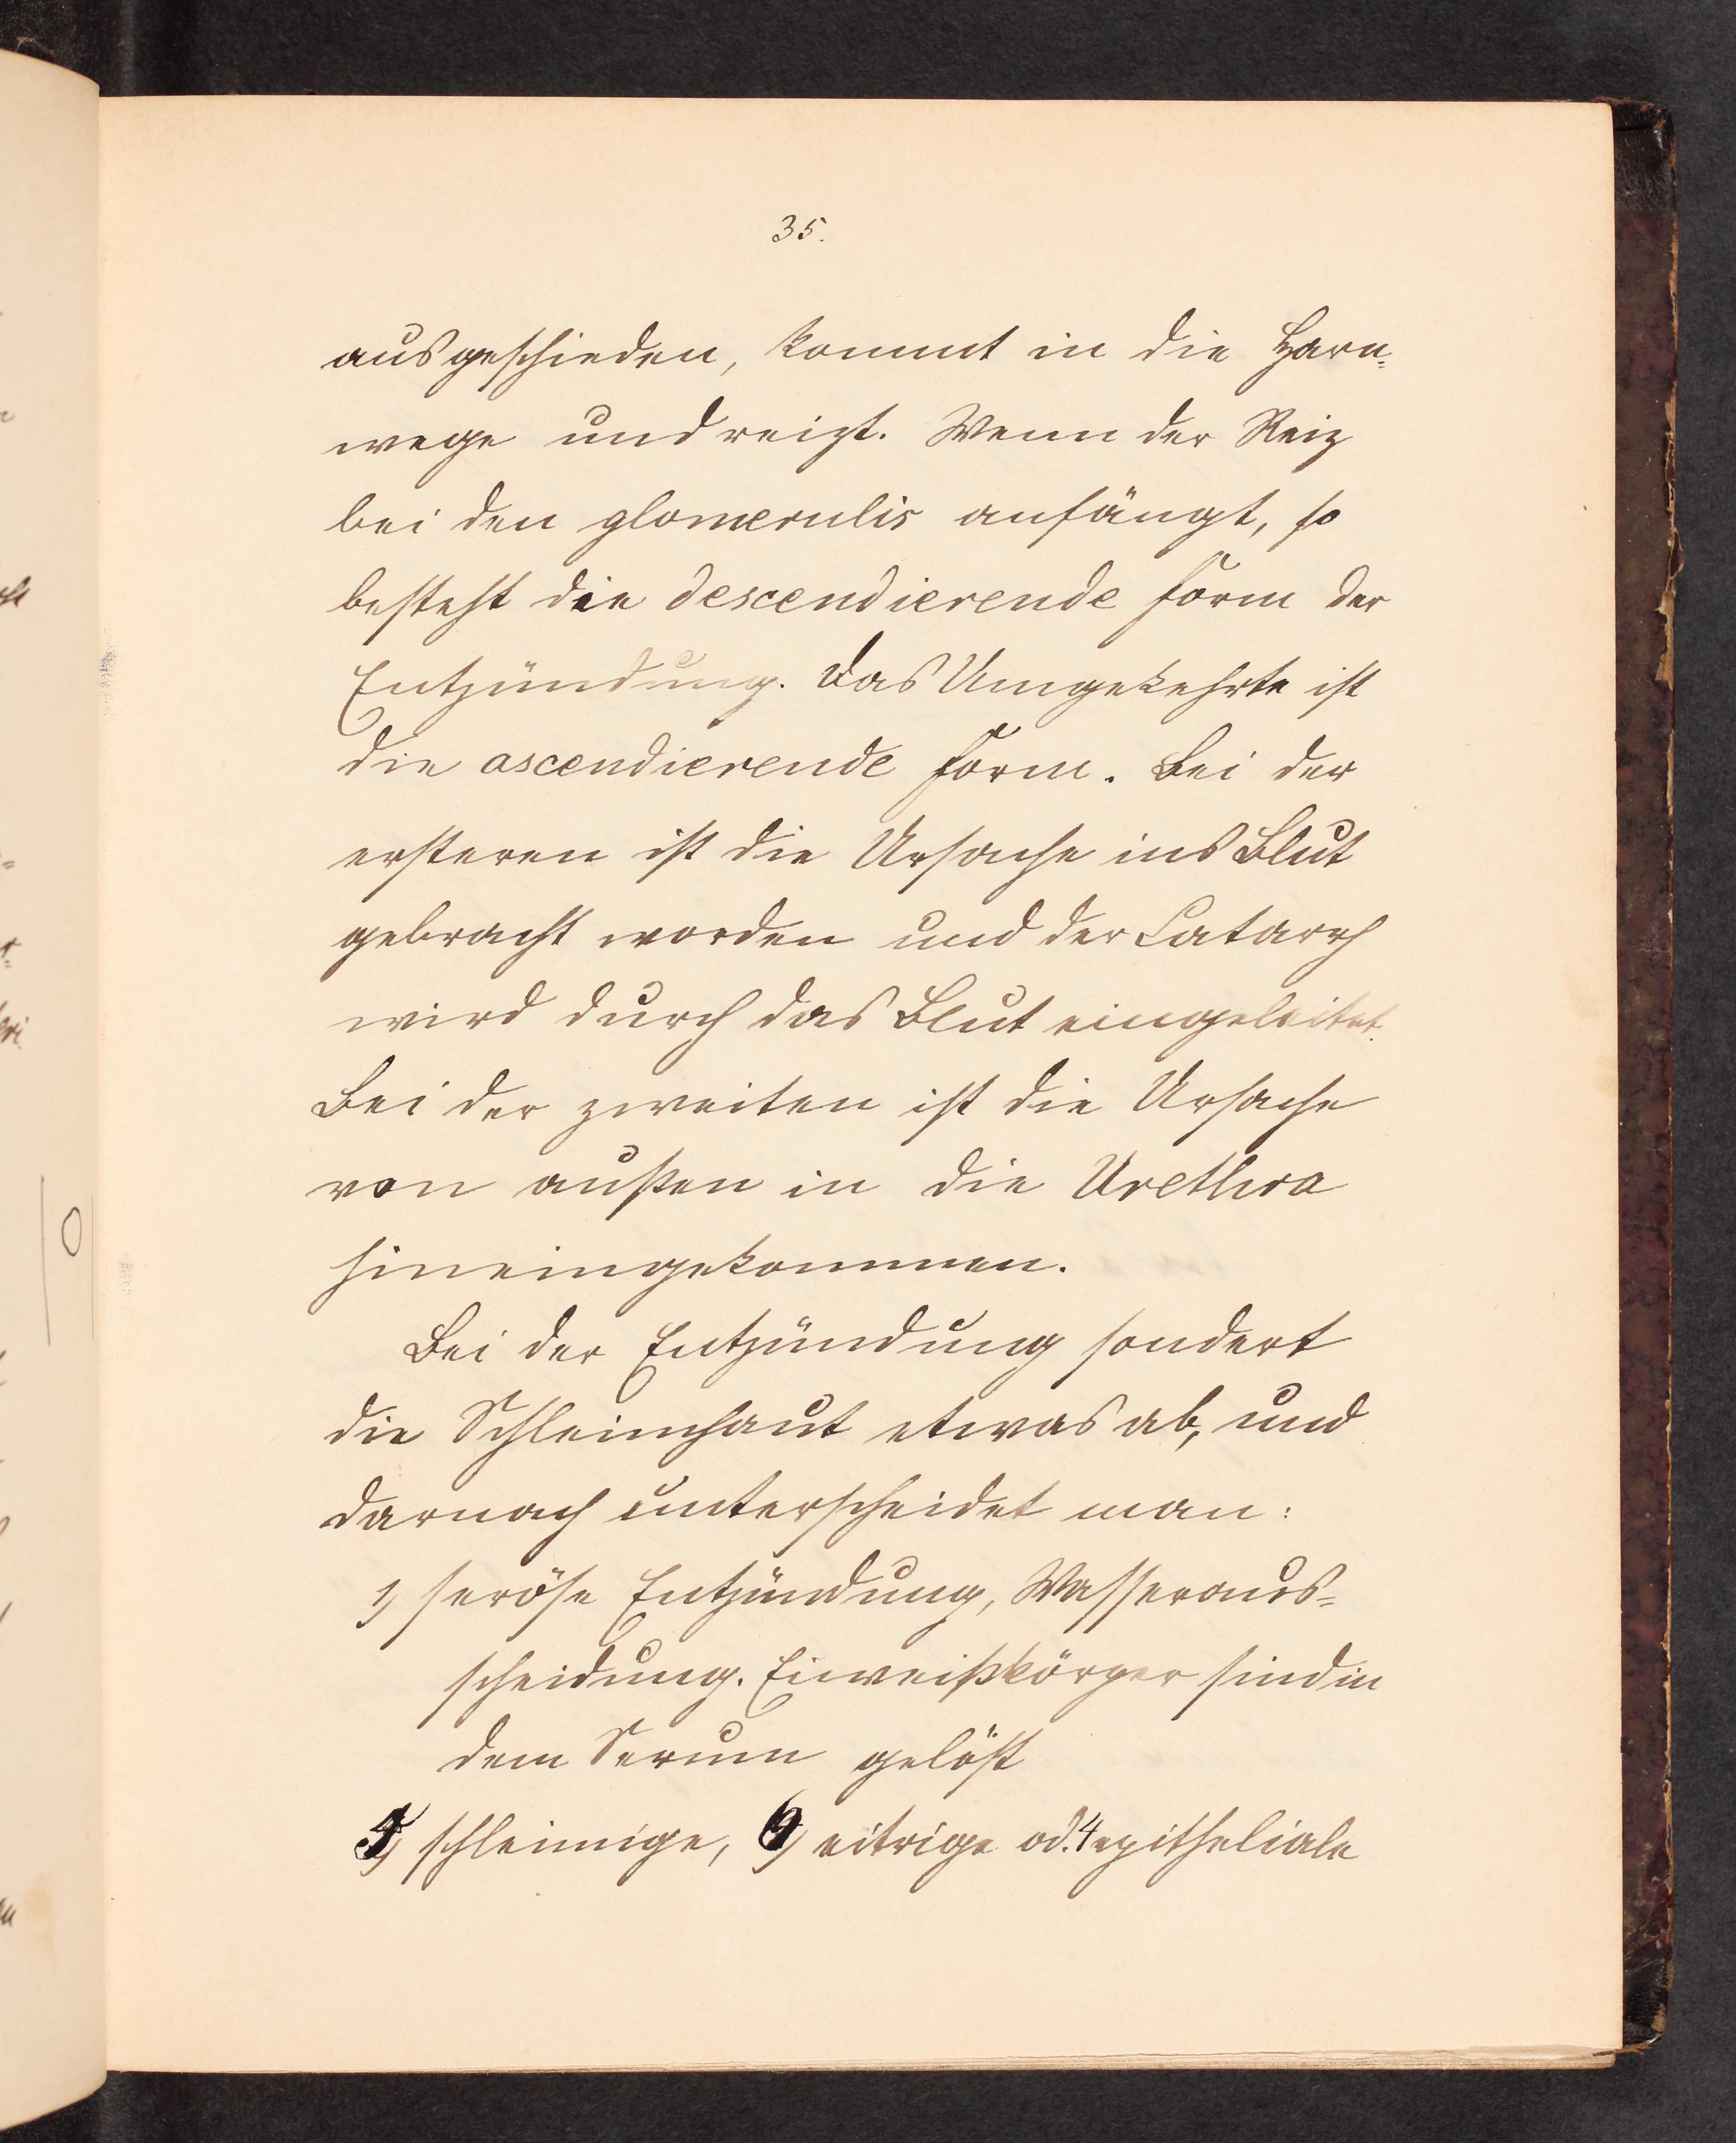 35.
ausgeschieden, kommt in die Harn-
wege und reizt. Wenn der Reiz
bei den glomerulis anfängt, so
besteht die descendierende Form der
Entzündung. Das Umgekehrte ist
die ascendierende Form. Bei der
ersteren ist die Ursache ins Blut
gebracht worden und der Catarrh
wird durch das Blut eingeleitet.
Bei der zweiten ist die Ursache
von außen in die Urethra
hineingekommen.
Bei der Entzündung sondert
die Schleimhaut etwas ab, und
darnach unterscheidet man:
1) seröse Entzündung, Wasseraus-
scheidung. Eiweißkörper sind in
dem Serum gelöst
schleimige, eitrige od. 4 epitheliale